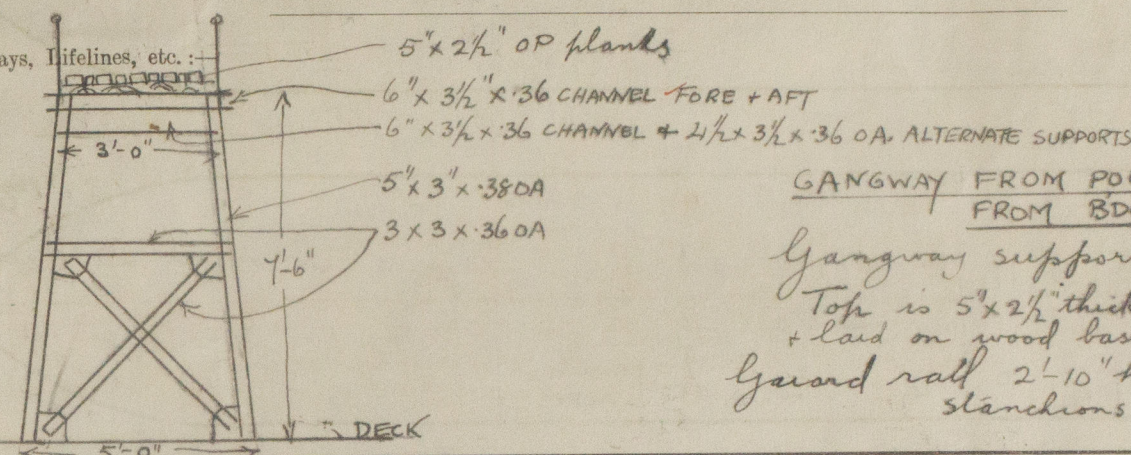 ays, Lifelines, etc. :-
5" x 2½" OP planks
6" x 3½" x .36 CHANNEL FORE + AFT
6" x 3½ x .36 CHANNEL + 4½ x 3½ x .36 OA. ALTERNATE SUPPORTS
3'-0"
5" x 3" x .38 OA
3 x 3 x .36 OA
7'-6"
DECK
5'-0"
GANGWAY FROM POO
FROM BD
Gangway suppor
Top is 5" x 2½" thick
+ laid on wood bas
Guard rail 2'-10"
stanchions